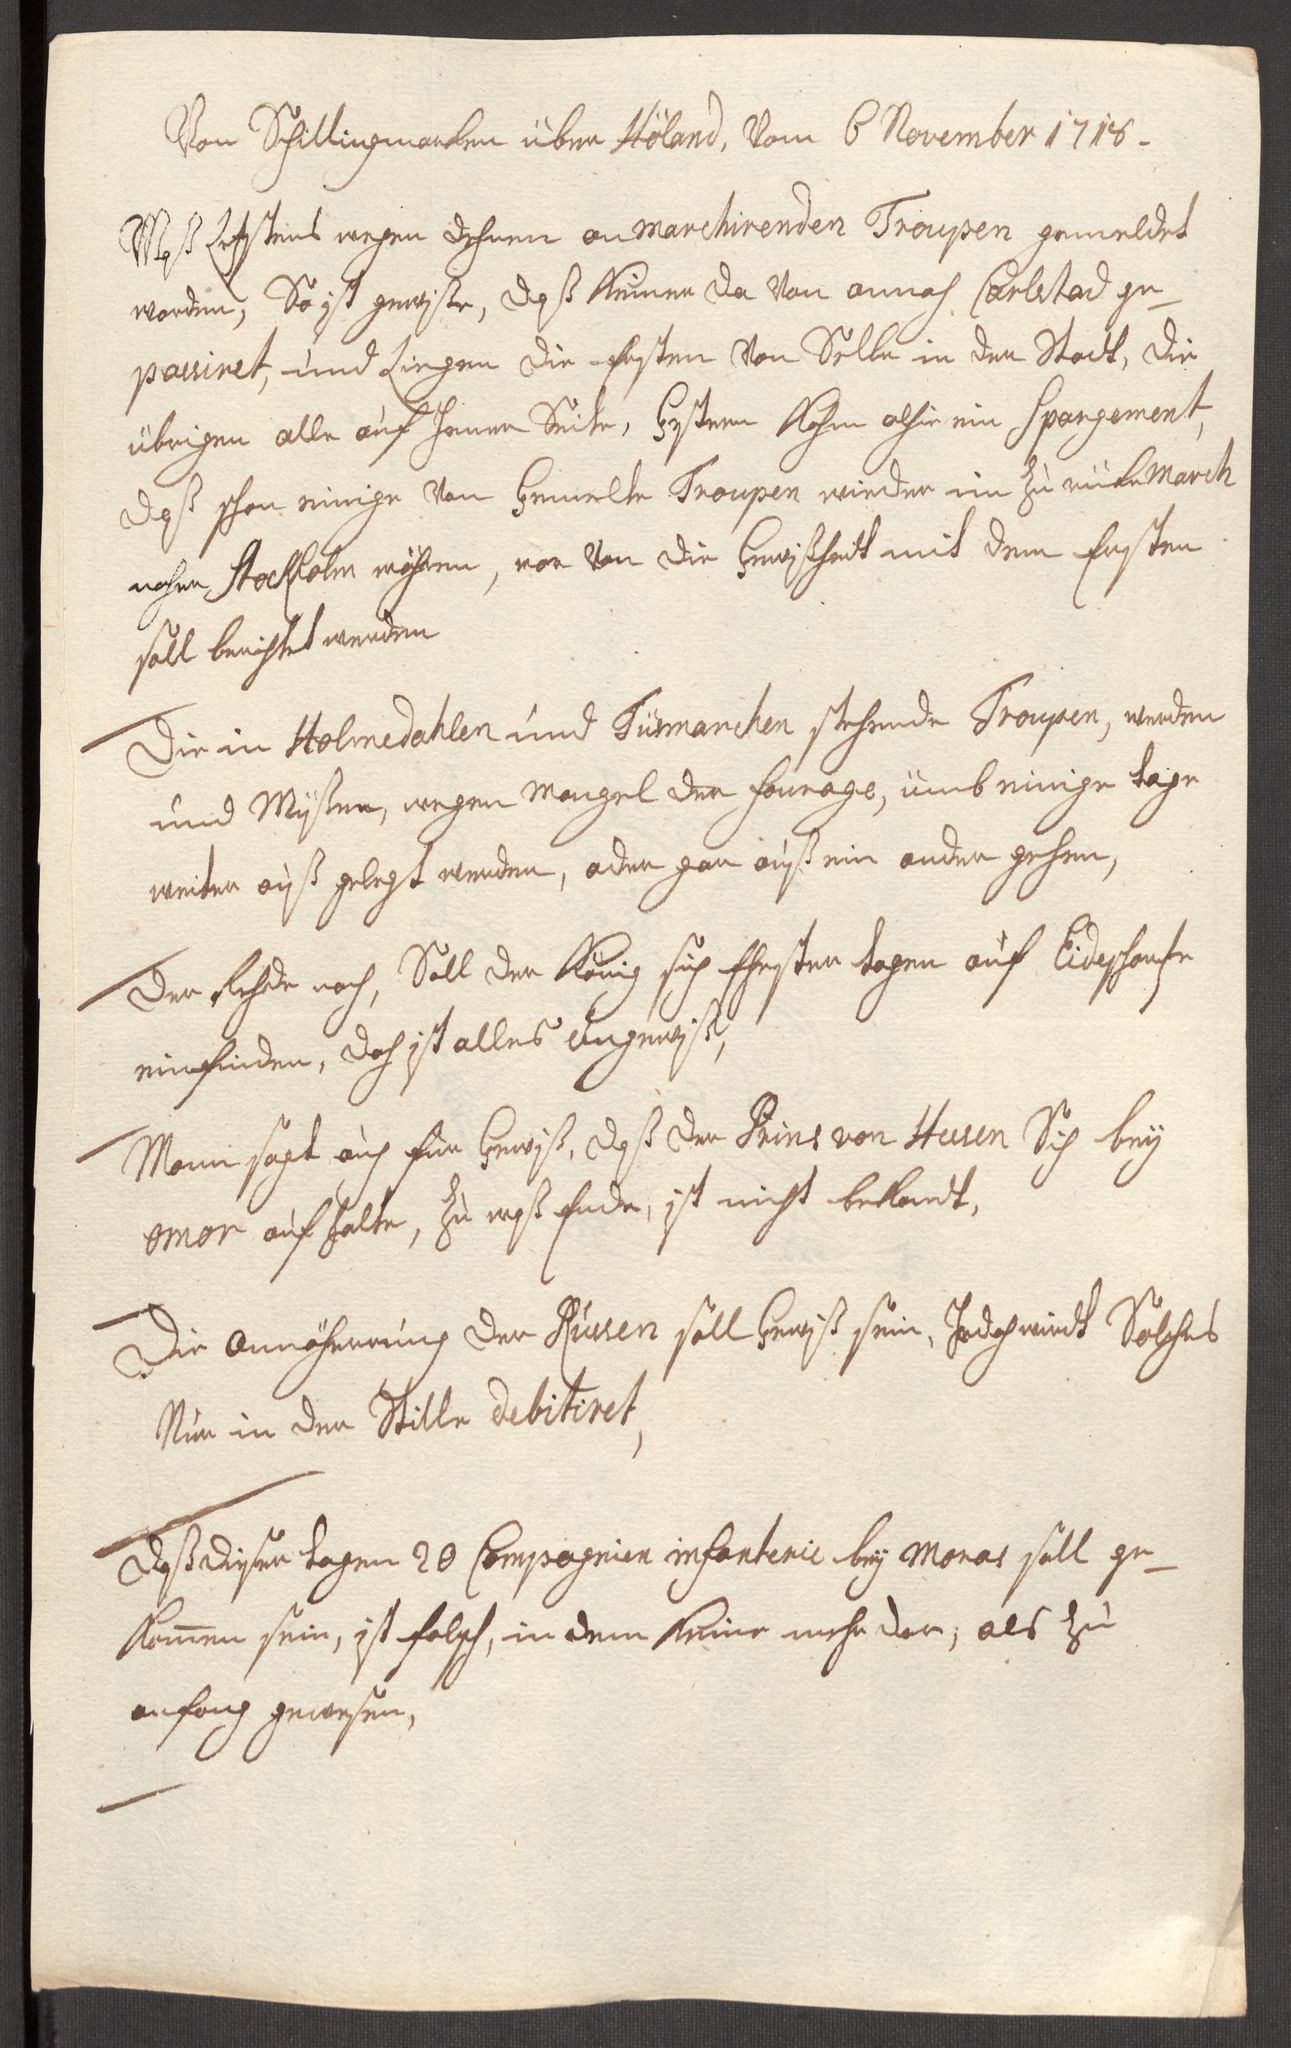 Von Schillingmarken über Höland, Vom 6 November 1718.
Waß Letzstens wegen dehnen an marchirenden Troupen gemeldet
worden, So ist gewisse, daß Keiner da Von annoch Carlstad ge-
passiret, und Liegen die Ersten Von Selbe in der Stadt, die
übrigen alle auf Jener Seite, Gestern Kahm alhie ein Spargement,
daß schon einige Von Gemelte Troupen wieder im Zu rücke March
naher Stockholm wahren, wor Von die Gewißheit mit dem Ersten
soll berichtet werden
Die in Holmedahlen und Tüsmarchen stehende Troupen, werden
und Müssen, wegen Mangel der fourage, umb einige tage
weiter auß gelegt werden, oder gar auß ein ander gehen,
Der Rehde nach, Soll der König sich Ehester tagen auf Eideschantze
einfinden, doch ist alles Ungewiß,
Mann sagt auch für Gewiß, daß der Prins von Hessen Sich bey
omor auf halte, Zu waß Ende, ist nicht bekandt,
Die Annäherrung der Russen soll Gewiß sein, Jedoch wirdt Solches
Nur in der Stille debitiret,
Daß dieser tagen 20 Compagnien infanterie bey Moras soll ge-
Kommen sein, ist falsch, in dem Keine mehr dar, als Zu
anfang gewesen,